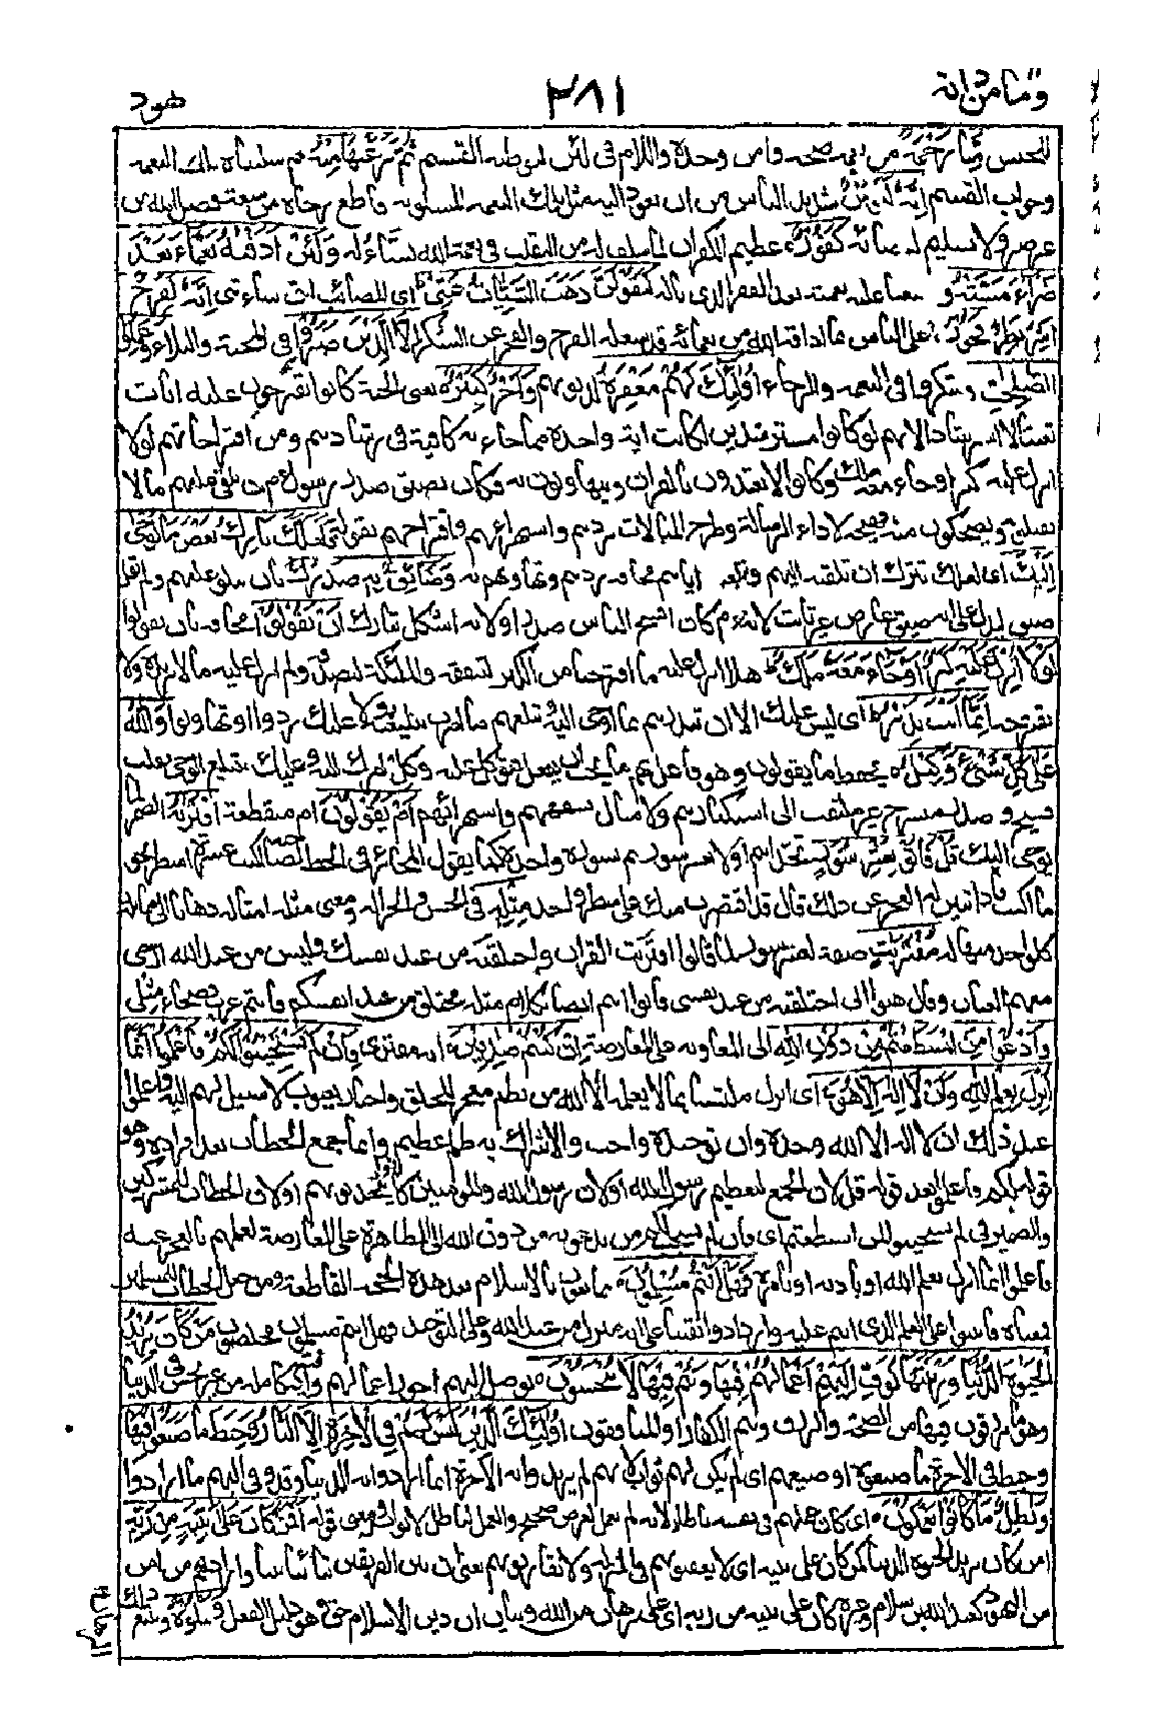 وما من دابة ٣٨١ هود
للجنس منا رحمة نعمة من صحة وأمن وجدة واللام في لئن لتوطئة القسم ثم نزعناها منه ثم سلبناه تلك النعمة
وجواب القسم إنه ليؤس شديد اليأس من أن يعود إليه مثل تلك النعمة المسلوبة قاطع رجاءه من سعة فضل الله من
غير صبر ولا تسليم لقضائه كفور عظيم الكفران لما سلف له من التقلب في نعمة الله نساء له ولئن أذقناه نعماء بعد
ضراء مسته وسعنا عليه النعمة بعد الفقر الذي ناله ليقولن ذهب السيئات عني أي المصائب التي ساءتني إنه لفرح
أشر بطر فخور على الناس بما أذاقه الله من نعمائه قد شغله الفرح والفخر عن الشكر إلا الذين صبروا في المحنة والبلاء وعملوا
الصلحت وشكروا في النعمة والرخاء أولئك لهم مغفرة لذنوبهم وأجر كبير يعني الجنة كانوا يقترحون عليه آيات
تعنتا لا استرشادا لأنهم لو كانوا مسترشدين لكانت آية واحدة مما جاء به كافية في رشادهم ومن اقتراحاتهم لولا
أنزل عليه كنز أو جاء معه ملك وكانوا لا يعتدون بالقرآن ويتهاونون به فكان يضيق صدر رسول الله م أن يلقي إليهم ما لا
يقبلونه ويضحكون منه فهيجه لأداء الرسالة وطرح المبالاة بردهم واستهزائهم واقتراحهم بقوله فلعلك تارك بعض ما يوحى
إليك أي لعلك تترك أن تلقيه إليهم وتبلغه إياهم مخافة ردهم وتهاونهم به وضائق به صدرك بأن تتلوه عليهم ولم يقل
ضيق ليدل على أنه ضيق عارض غير ثابت لأنه م كان أفسح الناس صدرا ولأنه أشكل بتارك أن يقولوا مخافة أن يقولوا
لولا أنزل عليه كنز أو جاء معه ملك هلا أنزل عليه ما اقترحنا من الكنز لننفقه والملئكة لنصدقه ولم أنزل عليه ما لا نريده ولا
نقترحه إنما أنت نذير أي ليس عليك إلا أن تنذرهم بما أوحي إليك وتبلغهم ما أمرت بتبليغه ولا عليك ردوا أو تهاونوا والله
على كل شيء وكيل يحفظ ما يقولون وهو فاعل بهم ما يجب أن يفعل فتوكل عليه وكل أمرك إليه وعليك بتبليغ الوحي بقلب
فسيح وصدر منشرح غير ملتفت إلى استكبارهم ولا مبال بسفههم واستهزائهم أم يقولون أم منقطعة افتراه الضمير لما
يوحى إليك قل فأتوا بعشر سور تحداهم أولا بعشر سور ثم بسورة واحدة كما يقول المخابر في الخط لصاحبه اكتب عشرة أسطر نحو
ما أكتب فإذا تبين له العجز عن ذلك قال قد اقتصرت منك على سطر واحد مثله في الحسن والجزالة ومعنى مثله أمثاله ذهابا إلى مماثلة
كل واحدة منها له مفتريات صفة لعشر سور لما قالوا افتريت القرآن واختلقته من عند نفسك وليس من عند الله أرخى
معهم العنان وقال هبوا أني اختلقته من عند نفسي فأتوا أنتم أيضا بكلام مثله مختلق من عند أنفسكم فأنتم عرب فصحاء مثلي
وادعوا من استطعتم من دون الله إلى المعاونة على المعارضة إن كنتم صدقين أنه مفترى فإن لم يستجيبوا لكم فاعلموا أنما
أنزل بعلم الله وأن لا إله إلا هو أي أنزل ملتبسا بما لا يعلمه إلا الله من نظم معجز للخلق وإخبار بغيوب لا سبيل لهم إليه واعلموا
عند ذلك أن لا إله إلا الله وحده وأن توحيده واجب والإشراك به ظلم عظيم وإنما جمع الخطاب بعد إفراده وهو
قوله لكم فاعلموا بعد قوله قل لأن الجمع لتعظيم رسول الله أو لأن رسول الله والمؤمنين كانوا يتحدونهم أو لأن الخطاب للمشركين
والضمير في لم يستجيبوا لمن استطعتم أي فإن لم يستجب لكم من تدعونه من دون الله إلى المظاهرة على المعارضة لعلمهم بالعجز عنه
فاعلموا أنما أنزل بعلم الله أو بإذنه أو بأمره فهل أنتم مسلمون متابعون بالإسلام بعد هذه الحجة القاطعة ومن جعل الخطاب للمسلمين
فمعناه فاثبتوا على العلم الذي أنتم عليه وازدادوا يقينا على أنه منزل من عند الله وعلى التوحيد فهل أنتم مسلمون مخلصون من كان يريد
الحيوة الدنيا وزينتها نوف إليهم أعمالهم فيها وهم فيها لا يبخسون نوصل إليهم أجور أعمالهم وافية كاملة من غير بخس في الدنيا
وهو ما يرزقون فيها من الصحة والرزق وهم الكفار أو المنافقون أولئك الذين ليس لهم في الآخرة إلا النار وحبط ما صنعوا فيها
وحبط في الآخرة ما صنعوه أو صنيعهم أي لم يكن لهم ثواب لأنهم لم يريدوا به الآخرة إنما أرادوا به الدنيا وقد وفي إليهم ما أرادوا
وبطل ما كانوا يعملون أي كان عملهم في نفسه باطلا لأنه لم يعمل لغرض صحيح والعمل الباطل لا ثواب له قوله أفمن كان على بينة من ربه
أمن كان يريد الحيوة الدنيا كمن كان على بينة أي لا يعقبونهم في المنزلة ولا يقاربونهم يعني أن بين الفريقين تباينا بينا وأراد بهم من آمن
من اليهود كعبد الله بن سلام وغيره كان على بينة من ربه أي على برهان من الله وبيان أن دين الإسلام حق وهو دليل العقل ويتلوه ويتبع ذلك
البرهان